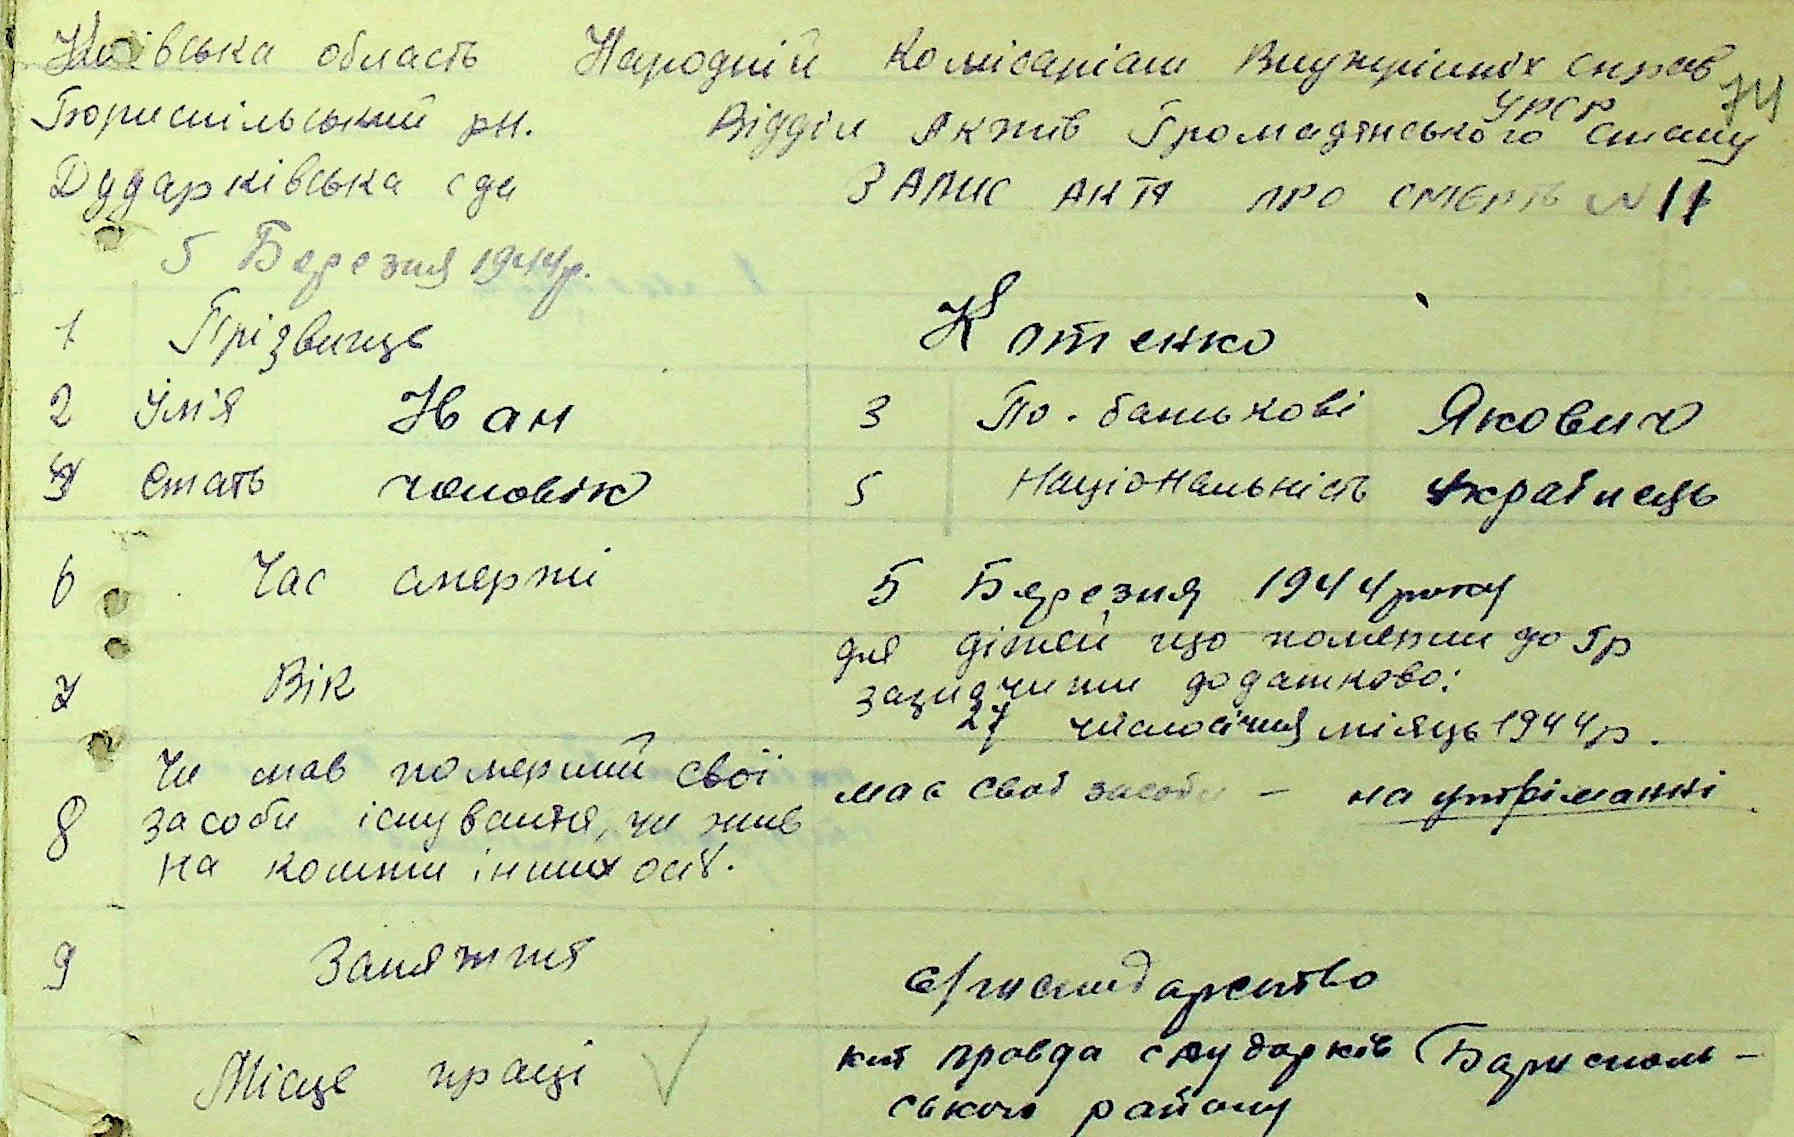 Київська область Народній Комісаріат Внутрішніх справ 74
УРСР
Бориспільський рн. Відділ Актів Громадянського Стану
Дударківська с/да ЗАПИС АКТА ПРО СМЕРТЬ N 11
5 Березня 1944р.
1 Прізвище Котенко
2 Ім'я Іван 3 По-батькові Якович
4 Стать чоловік 5 Національність Українець
6 Час смерті 5 Березня 1944 року
7 Вік для дітей що померли до 1р
зазначити додатково:
27 число січня місяць 1944р.
8 Чи мав померший свої
засоби існування, чи жив
на кошти інших осіб.
має свої засоби - на утріманні
9 Заняття с/господарство
Місце праці кгт правда с Дударків Бориспіль-
ського району